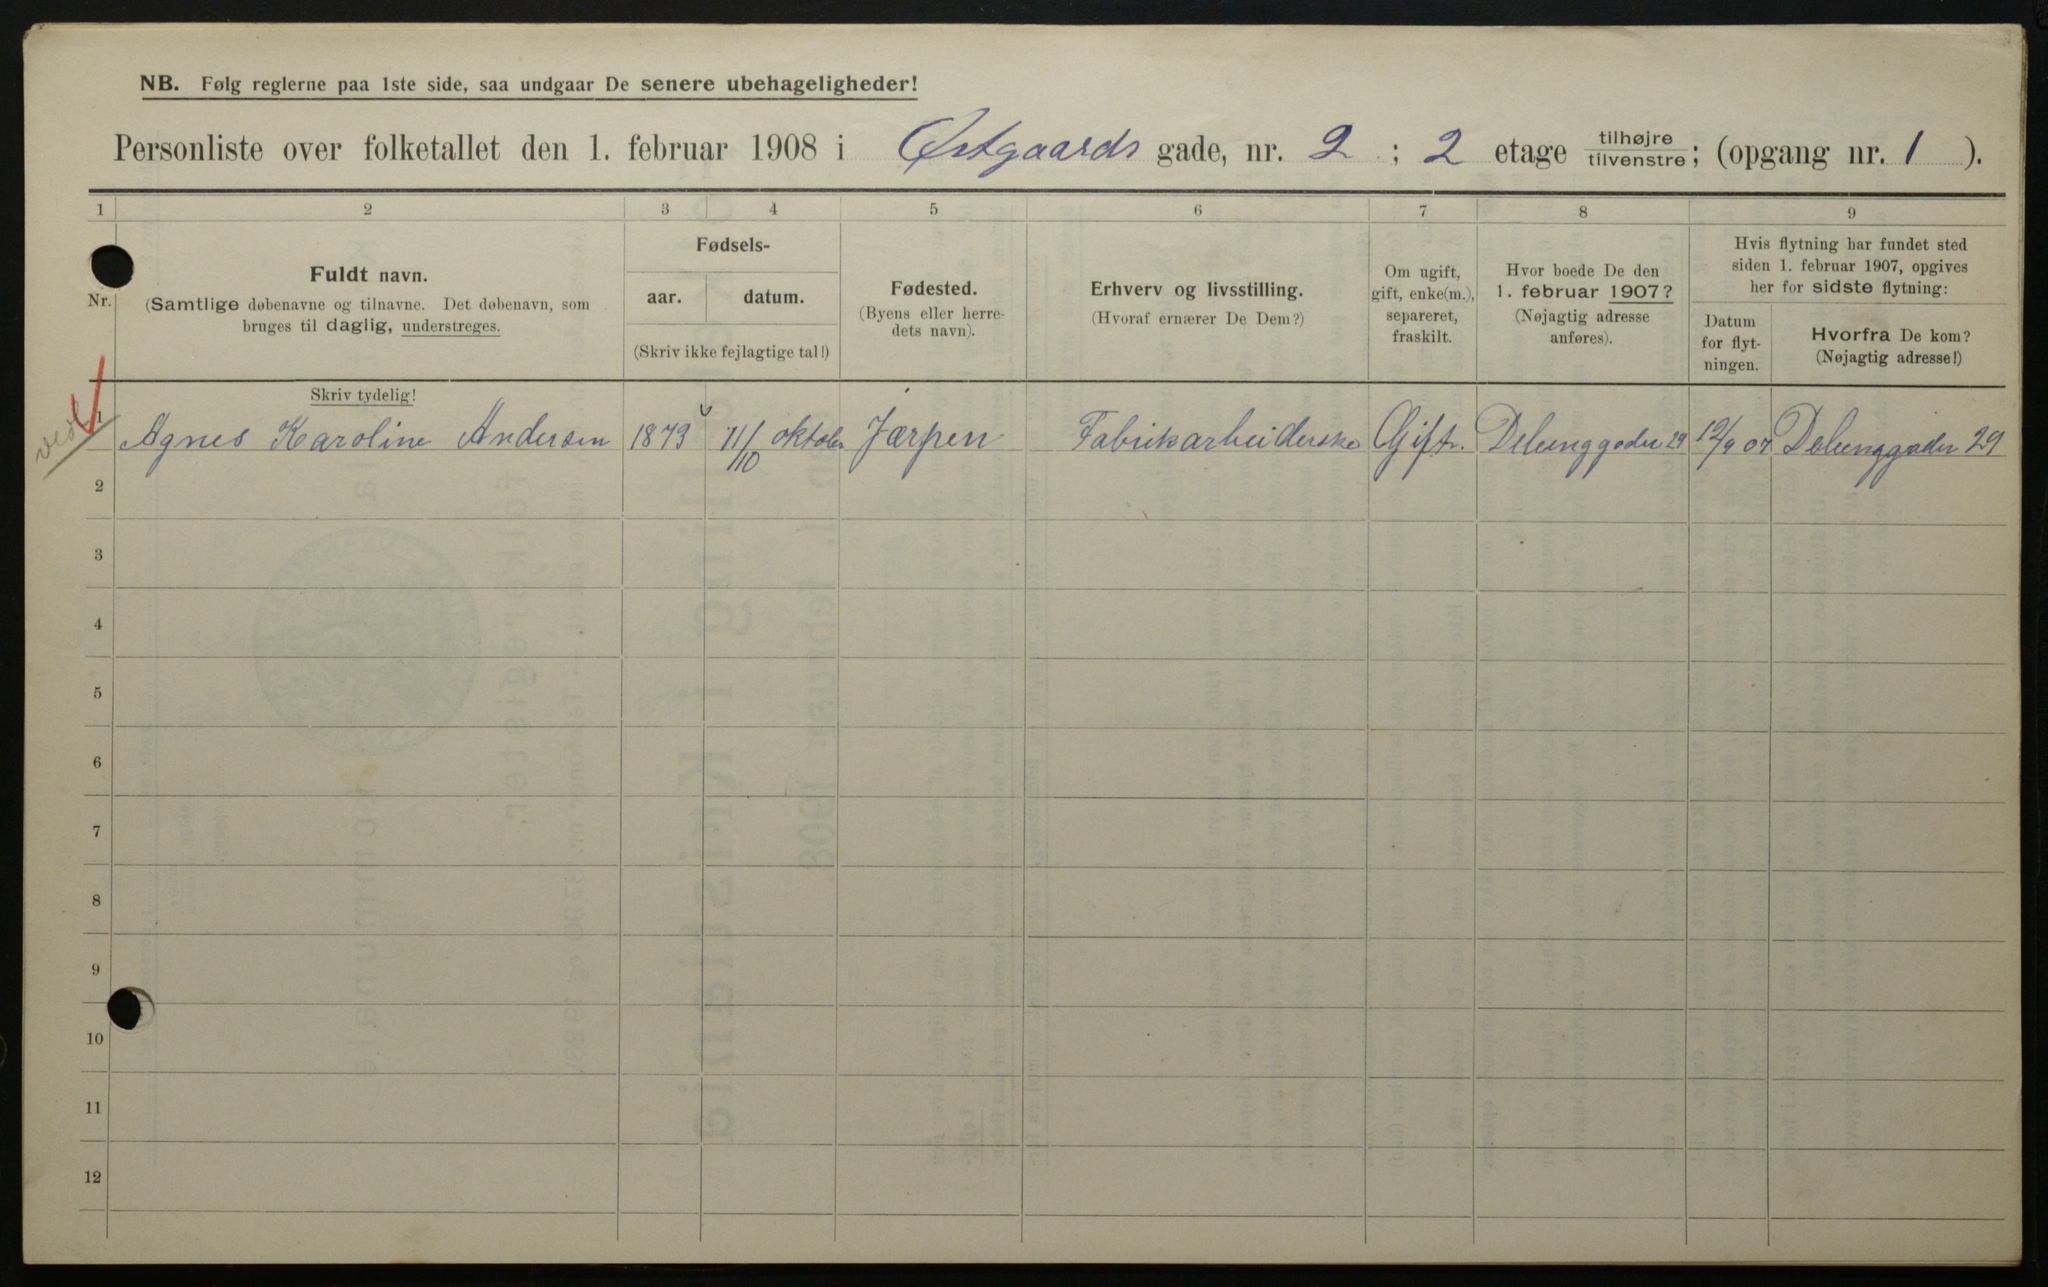 NB. Følg reglerne paa 1ste side, saa undgaar De senere ubehageligheder!
Personliste over folketallet den 1. februar 1908 i Østgaards gade, nr. 2 ; 2 etage tilhøjre tilvenstre; (opgang nr. 1 ).
1 2 3 4 5 6 7 8 9
Nr.
Fuldt navn.
(Samtlige døbenavne og tilnavne. Det døbenavn, som
bruges til daglig, understreges.
Skriv tydelig!
Fødsels-
aar. datum.
(Skriv ikke fejlagtige tal!)
Fødested.
(Byens eller herre-
dets navn).
Erhverv og livsstilling.
(Hvoraf ernærer De Dem?)
Om ugift,
gift, enke(m.),
separeret,
fraskilt.
Hvor boede De den
1. februar 1907?
(Nøjagtig adresse
anføres).
Hvis flytning har fundet sted
siden 1. februar 1907, opgives
her for sidste flytning:
Datum
for flyt-
ningen.
Hvorfra De kom?
(Nøjagtig adresse!)
1 Agnes Karoline Andersen 1873 11/10 oktober Jærpen Fabrikarbeiderske Gift. 29 07 29
2
3
4
5
6
7
8
9
10
11
12